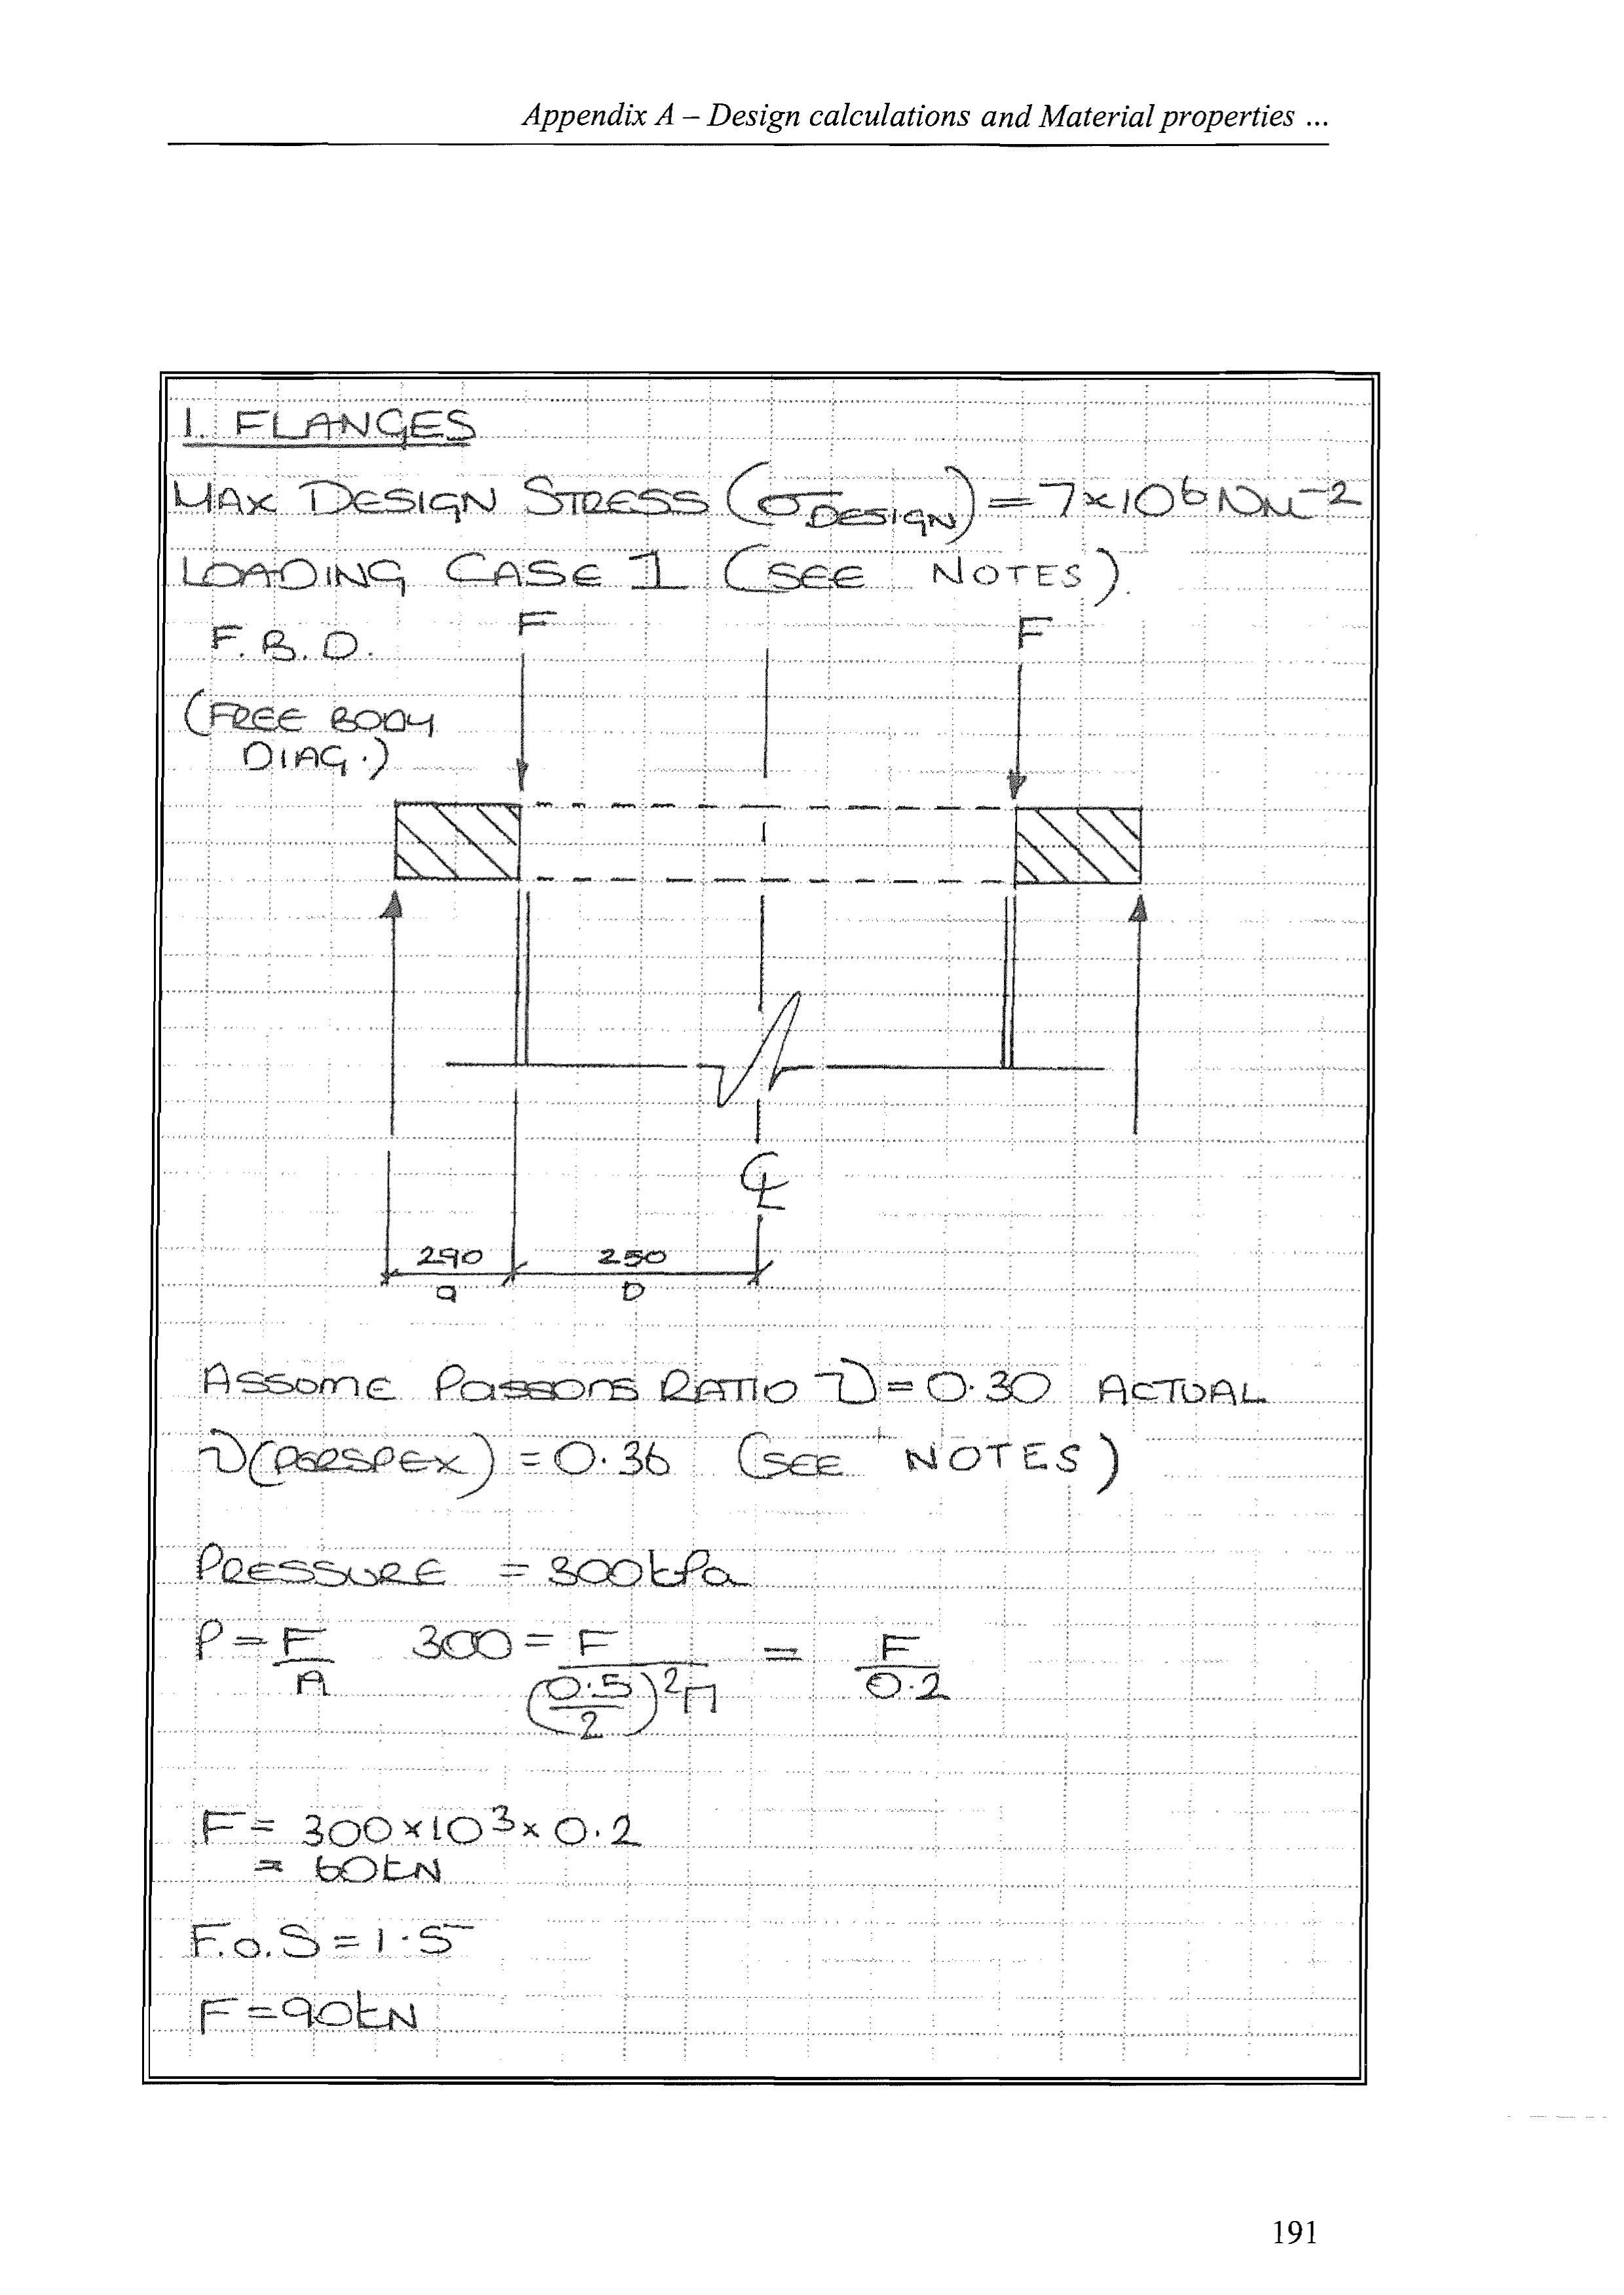 Appendix A – Design calculations and Material properties ...
1. FLANGES
MAX DESIGN STRESS (σDESIGN) = 7×10⁶ Nm⁻²
LOADING CASE 1 (SEE NOTES).
F.B.D. F F
(FREE BODY
DIAG.)
℄
290 250
a b
ASSUME POISSONS RATIO ν = 0.30 ACTUAL
ν(PERSPEX) = 0.36 (SEE NOTES)
PRESSURE = 300kPa
P = F/A 300 = F/(0.5/2)²π = F/0.2
F = 300×10³× 0.2
= 60kN
F.O.S = 1.5
F = 90kN
191